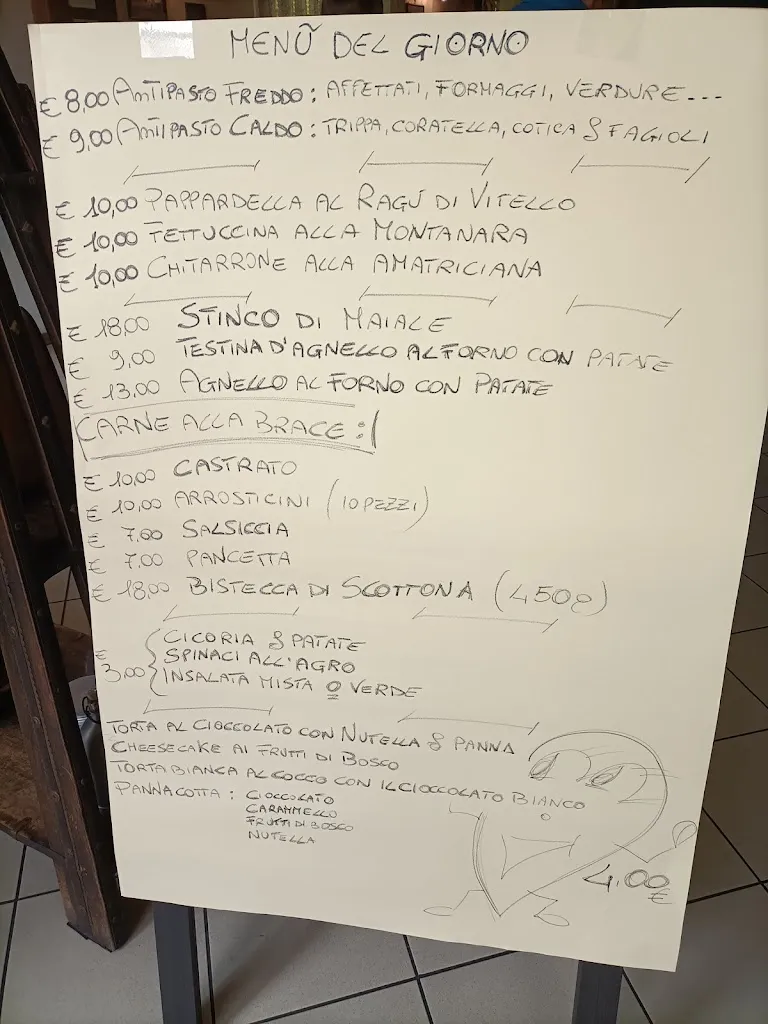 MENÙ DEL GIORNO
€ 8,00 ANTIPASTO FREDDO: AFFETTATI, FORMAGGI, VERDURE...
€ 9,00 ANTIPASTO CALDO: TRIPPA, CORATELLA, COTICA & FAGIOLI
€ 10,00 PAPPARDELLA AL RAGÙ DI VITELLO
€ 10,00 FETTUCCINA ALLA MONTANARA
€ 10,00 CHITARRONE ALLA AMATRICIANA
€ 18,00 STINCO DI MAIALE
€ 9,00 TESTINA D'AGNELLO AL FORNO CON PATATE
€ 13,00 AGNELLO AL FORNO CON PATATE
CARNE ALLA BRACE:
€ 10,00 CASTRATO
€ 10,00 ARROSTICINI (10 PEZZI)
€ 7,00 SALSICCIA
€ 7,00 PANCETTA
€ 18,00 BISTECCA DI SCOTTONA (450g)
CICORIA & PATATE
SPINACI ALL'AGRO
€ 3,00 INSALATA MISTA O VERDE
TORTA AL CIOCCOLATO CON NUTELLA & PANNA
CHEESECAKE AI FRUTTI DI BOSCO
TORTA BIANCA AL COCCO CON IL CIOCCOLATO BIANCO
PANNACOTTA: CIOCCOLATO
CARAMMELLO
FRUTTI DI BOSCO
NUTELLA
4,00 €